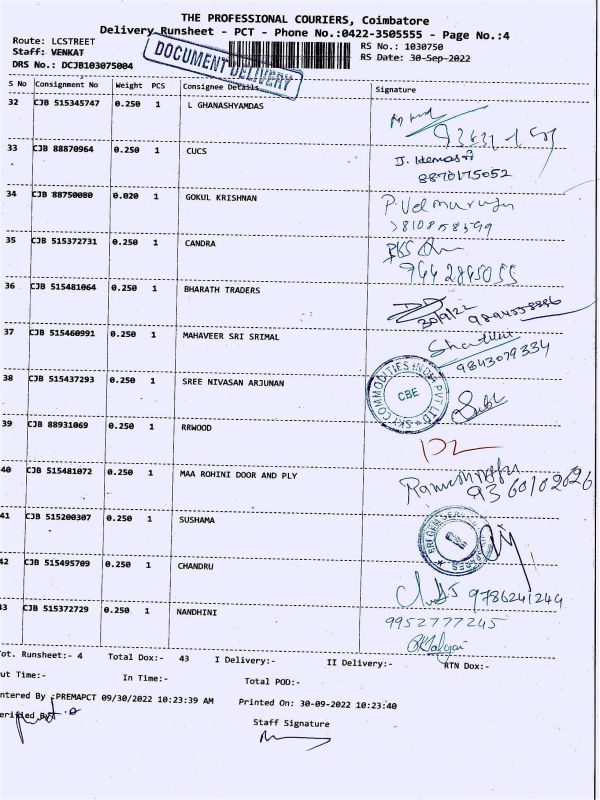 THE PROFESSIONAL COURIERS, Coimbatore
Delivery Runsheet - PCT - Phone No.:0422-3505555 - Page No.:4
Route: LCSTREET
Staff: VENKAT
DRS No.: DCJB103075004
DOCUMENT DELIVERY
RS No.: 1030750
RS Date: 30-Sep-2022
S No Consignment No Weight PCS Consignee Details Signature
32 CJB 515345747 0.250 1 L GHANASHYAMDAS
33 CJB 88870964 0.250 1 CUCS J. Hemasri
8870175052
34 CJB 88750080 0.020 1 GOKUL KRISHNAN P. Velmurugan
35 CJB 515372731 0.250 1 CANDRA
9442845055
36 CJB 515481064 0.250 1 BHARATH TRADERS
30/9/22 9894558386
37 CJB 515460991 0.250 1 MAHAVEER SRI SRIMAL
9843079334
38 CJB 515437293 0.250 1 SREE NIVASAN ARJUNAN
SKY COMMODITIES INDIA PVT LTD
CBE
39 CJB 88931069 0.250 1 RRWOOD
40 CJB 515481072 0.250 1 MAA ROHINI DOOR AND PLY
9360102026
41 CJB 515200307 0.250 1 SUSHAMA
42 CJB 515495709 0.250 1 CHANDRU
9786241244
43 CJB 515372729 0.250 1 NANDHINI 9952777245
Tot. Runsheet:- 4 Total Dox:- 43 I Delivery:- II Delivery:- RTN Dox:-
Out Time:- In Time:- Total POD:-
Entered By :PREMAPCT 09/30/2022 10:23:39 AM Printed On: 30-09-2022 10:23:40
Verified By:
Staff Signature